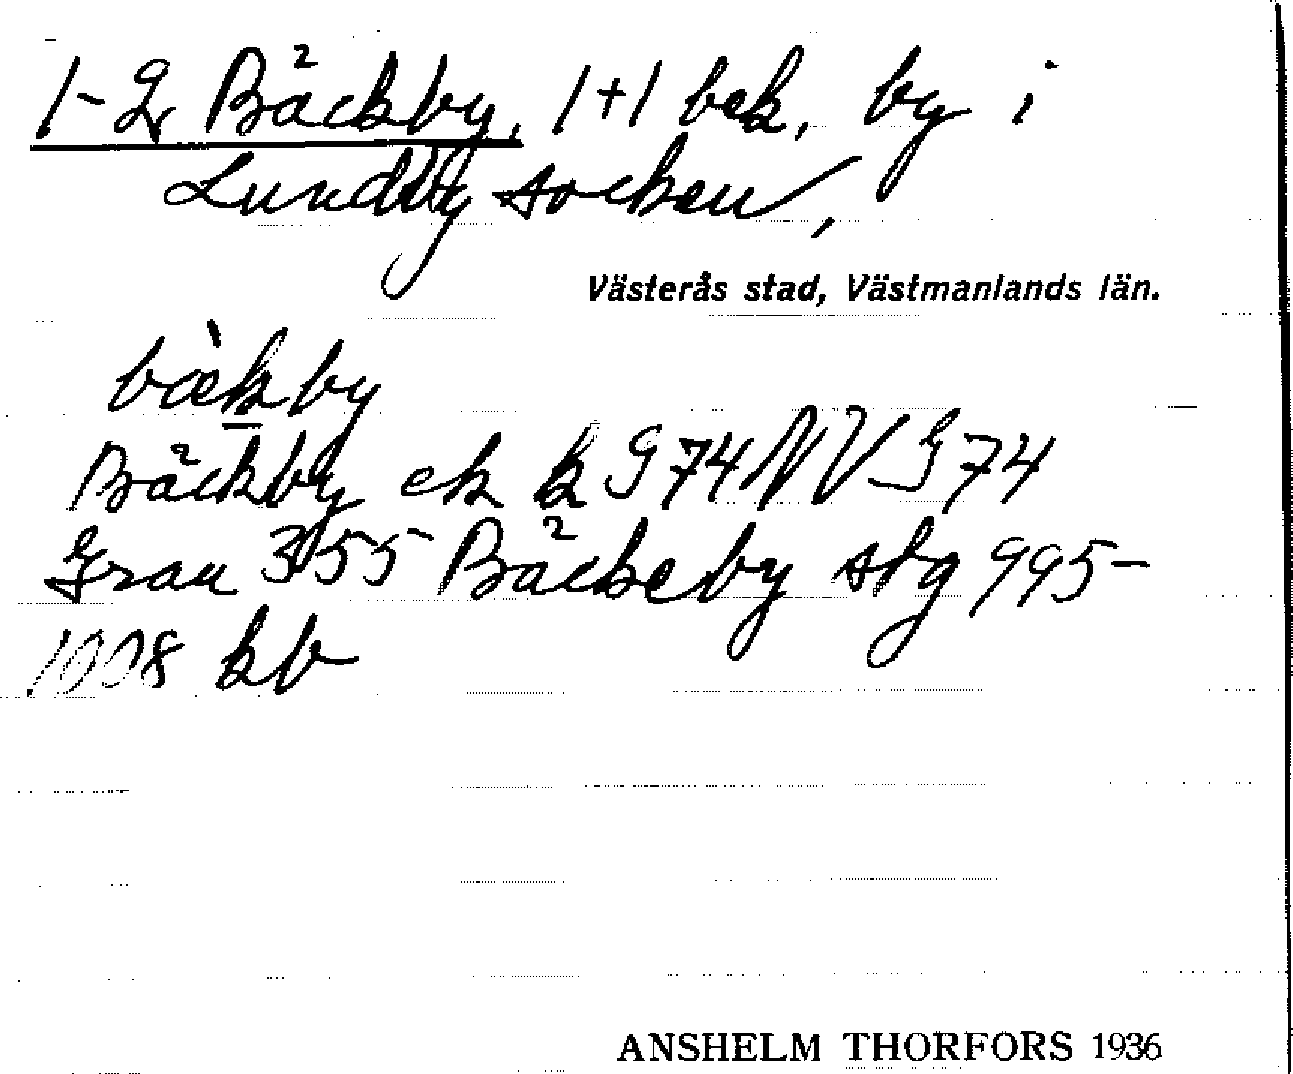 1-2 Bäckby, 1+1 bek, by i
Lundby socken,
Västerås stad, Västmanlands län.
bæ̀kby
Bäckby ek k G 74 NV G 74
Grau 355 Bäckeby stg 995-
1008 kb
ANSHELM THORFORS 1936